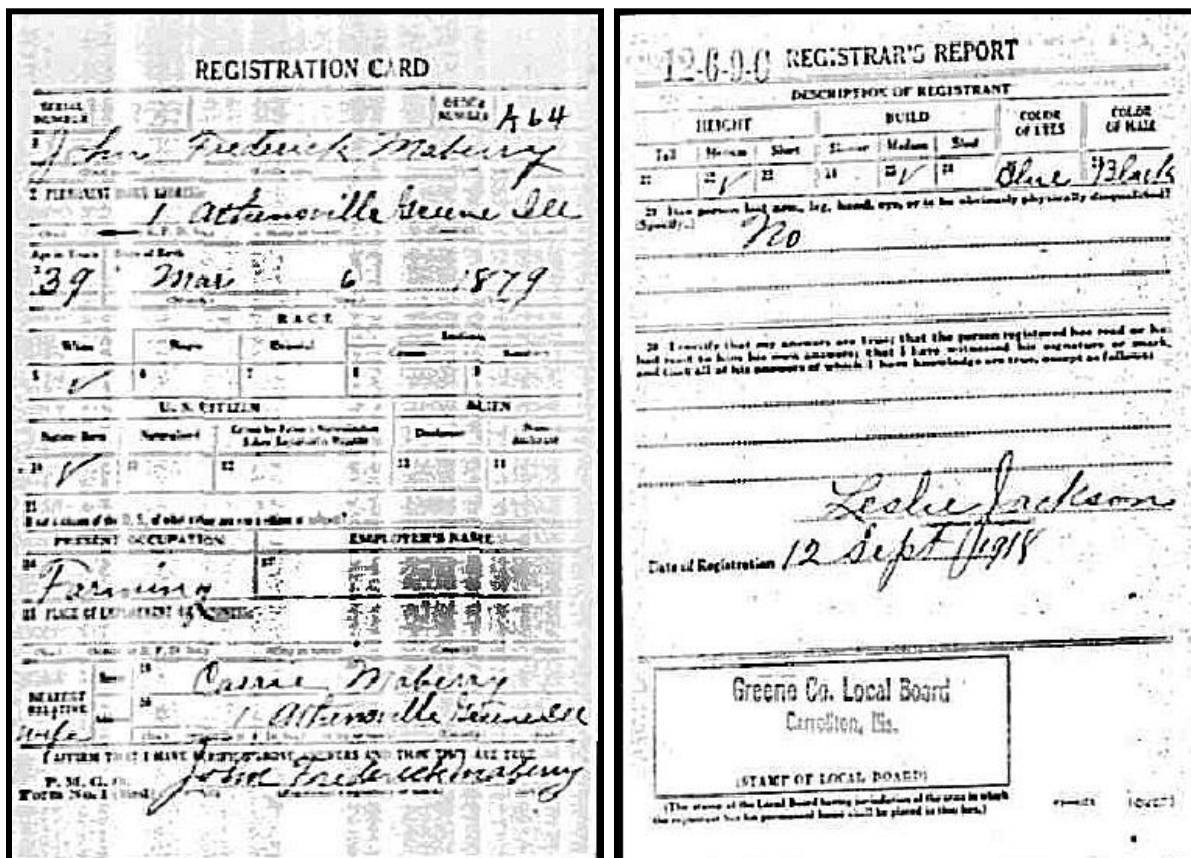 REGISTRATION CARD
SERIAL NUMBER
ORDER NUMBER A64
John Frederick Maberry
2 PERMANENT HOME ADDRESS
1 Athensville Greene Ill
Age in Years Date of Birth
39 Mar 6 1879
RACE
White Negro Oriental Indian
5 ✓ 6 7 8 9
U. S. CITIZEN ALIEN
Native Born Naturalized Declarant
10 ✓ 11 12 13 14
15
If not a citizen of the U. S., of what nation are you a citizen or subject?
PRESENT OCCUPATION EMPLOYER'S NAME
16 Farming 17
18 PLACE OF EMPLOYMENT OR BUSINESS
NEAREST RELATIVE
19 Carrie Maberry
wife
20 1 Athensville Greene Ill
I AFFIRM THAT I HAVE VERIFIED ABOVE ANSWERS AND THAT THEY ARE TRUE
P. M. G. O.
Form No. 1 (Red)
John Frederick Maberry
12-6-9-C REGISTRAR'S REPORT
DESCRIPTION OF REGISTRANT
HEIGHT BUILD COLOR OF EYES COLOR OF HAIR
Tall Medium Short Slender Medium Stout
21 22 ✓ 23 24 25 ✓ 26 Blue Black
29 Has person lost arm, leg, hand, eye, or is he obviously physically disqualified?
(Specify.) No
30 I certify that my answers are true; that the person registered has read or has
had read to him his own answers; that I have witnessed his signature or mark,
and that all of his answers of which I have knowledge are true, except as follows:
Leslie Jackson
Date of Registration 12 Sept 1918
Greene Co. Local Board
Carrollton, Ills.
(STAMP OF LOCAL BOARD)
(The stamp of the Local Board having jurisdiction of the area in which
the registrant has his permanent home shall be placed in this box.)
(OVER)